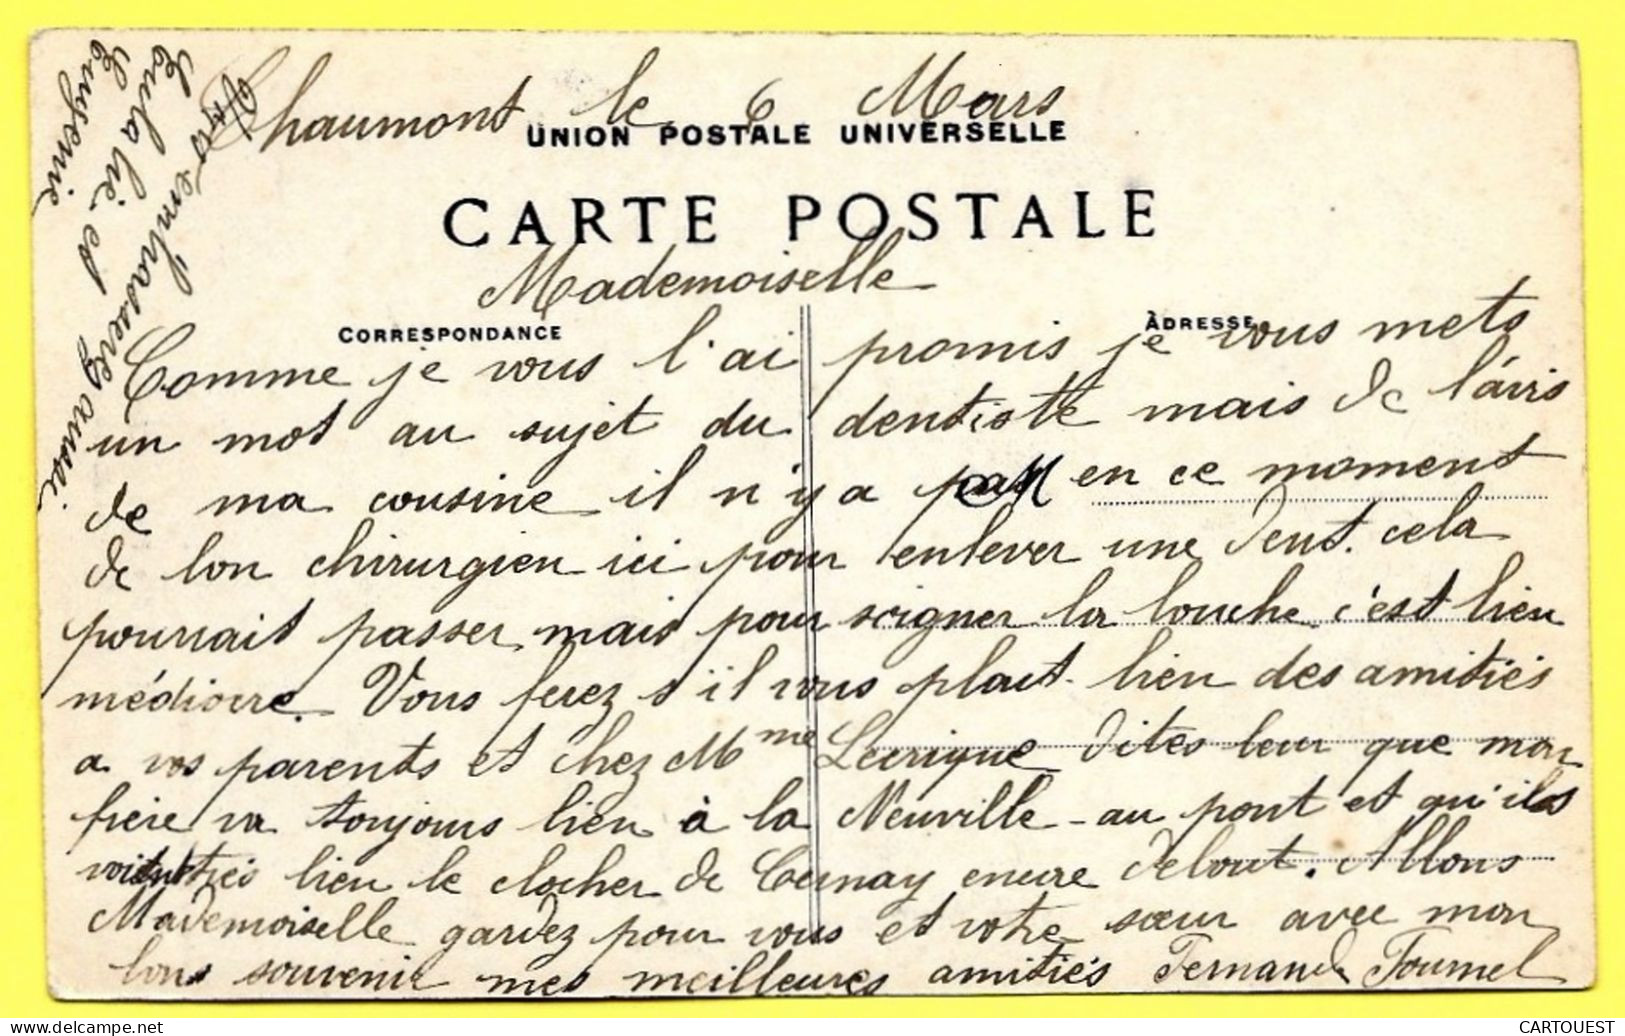 Chaumont le 6 Mars
UNION POSTALE UNIVERSELLE
CARTE POSTALE
Mademoiselle
CORRESPONDANCE
ADRESSE
Comme je vous l'ai promis je vous mets
un mot au sujet du dentiste mais de l'avis
de ma cousine il n'y a pas en ce moment
de bon chirurgien ici pour enlever une dent. cela
pourrait passer mais pour soigner la bouche c'est bien
médiocre. Vous ferez s'il vous plait bien des amitiés
a vos parents et chez Mme Lecrique dites leur que mon
frère va toujours bien à la Neuville-au pont et qu'ils
voient très bien le clocher de Cernay encore debout. Allons
Mademoiselle gardez pour vous et votre sœur avec mon
bons souvenir mes meilleures amitiés Fernande Fournel
Vous embrasserez aussi
Eulalie et
Eugenie
CARTOUEST